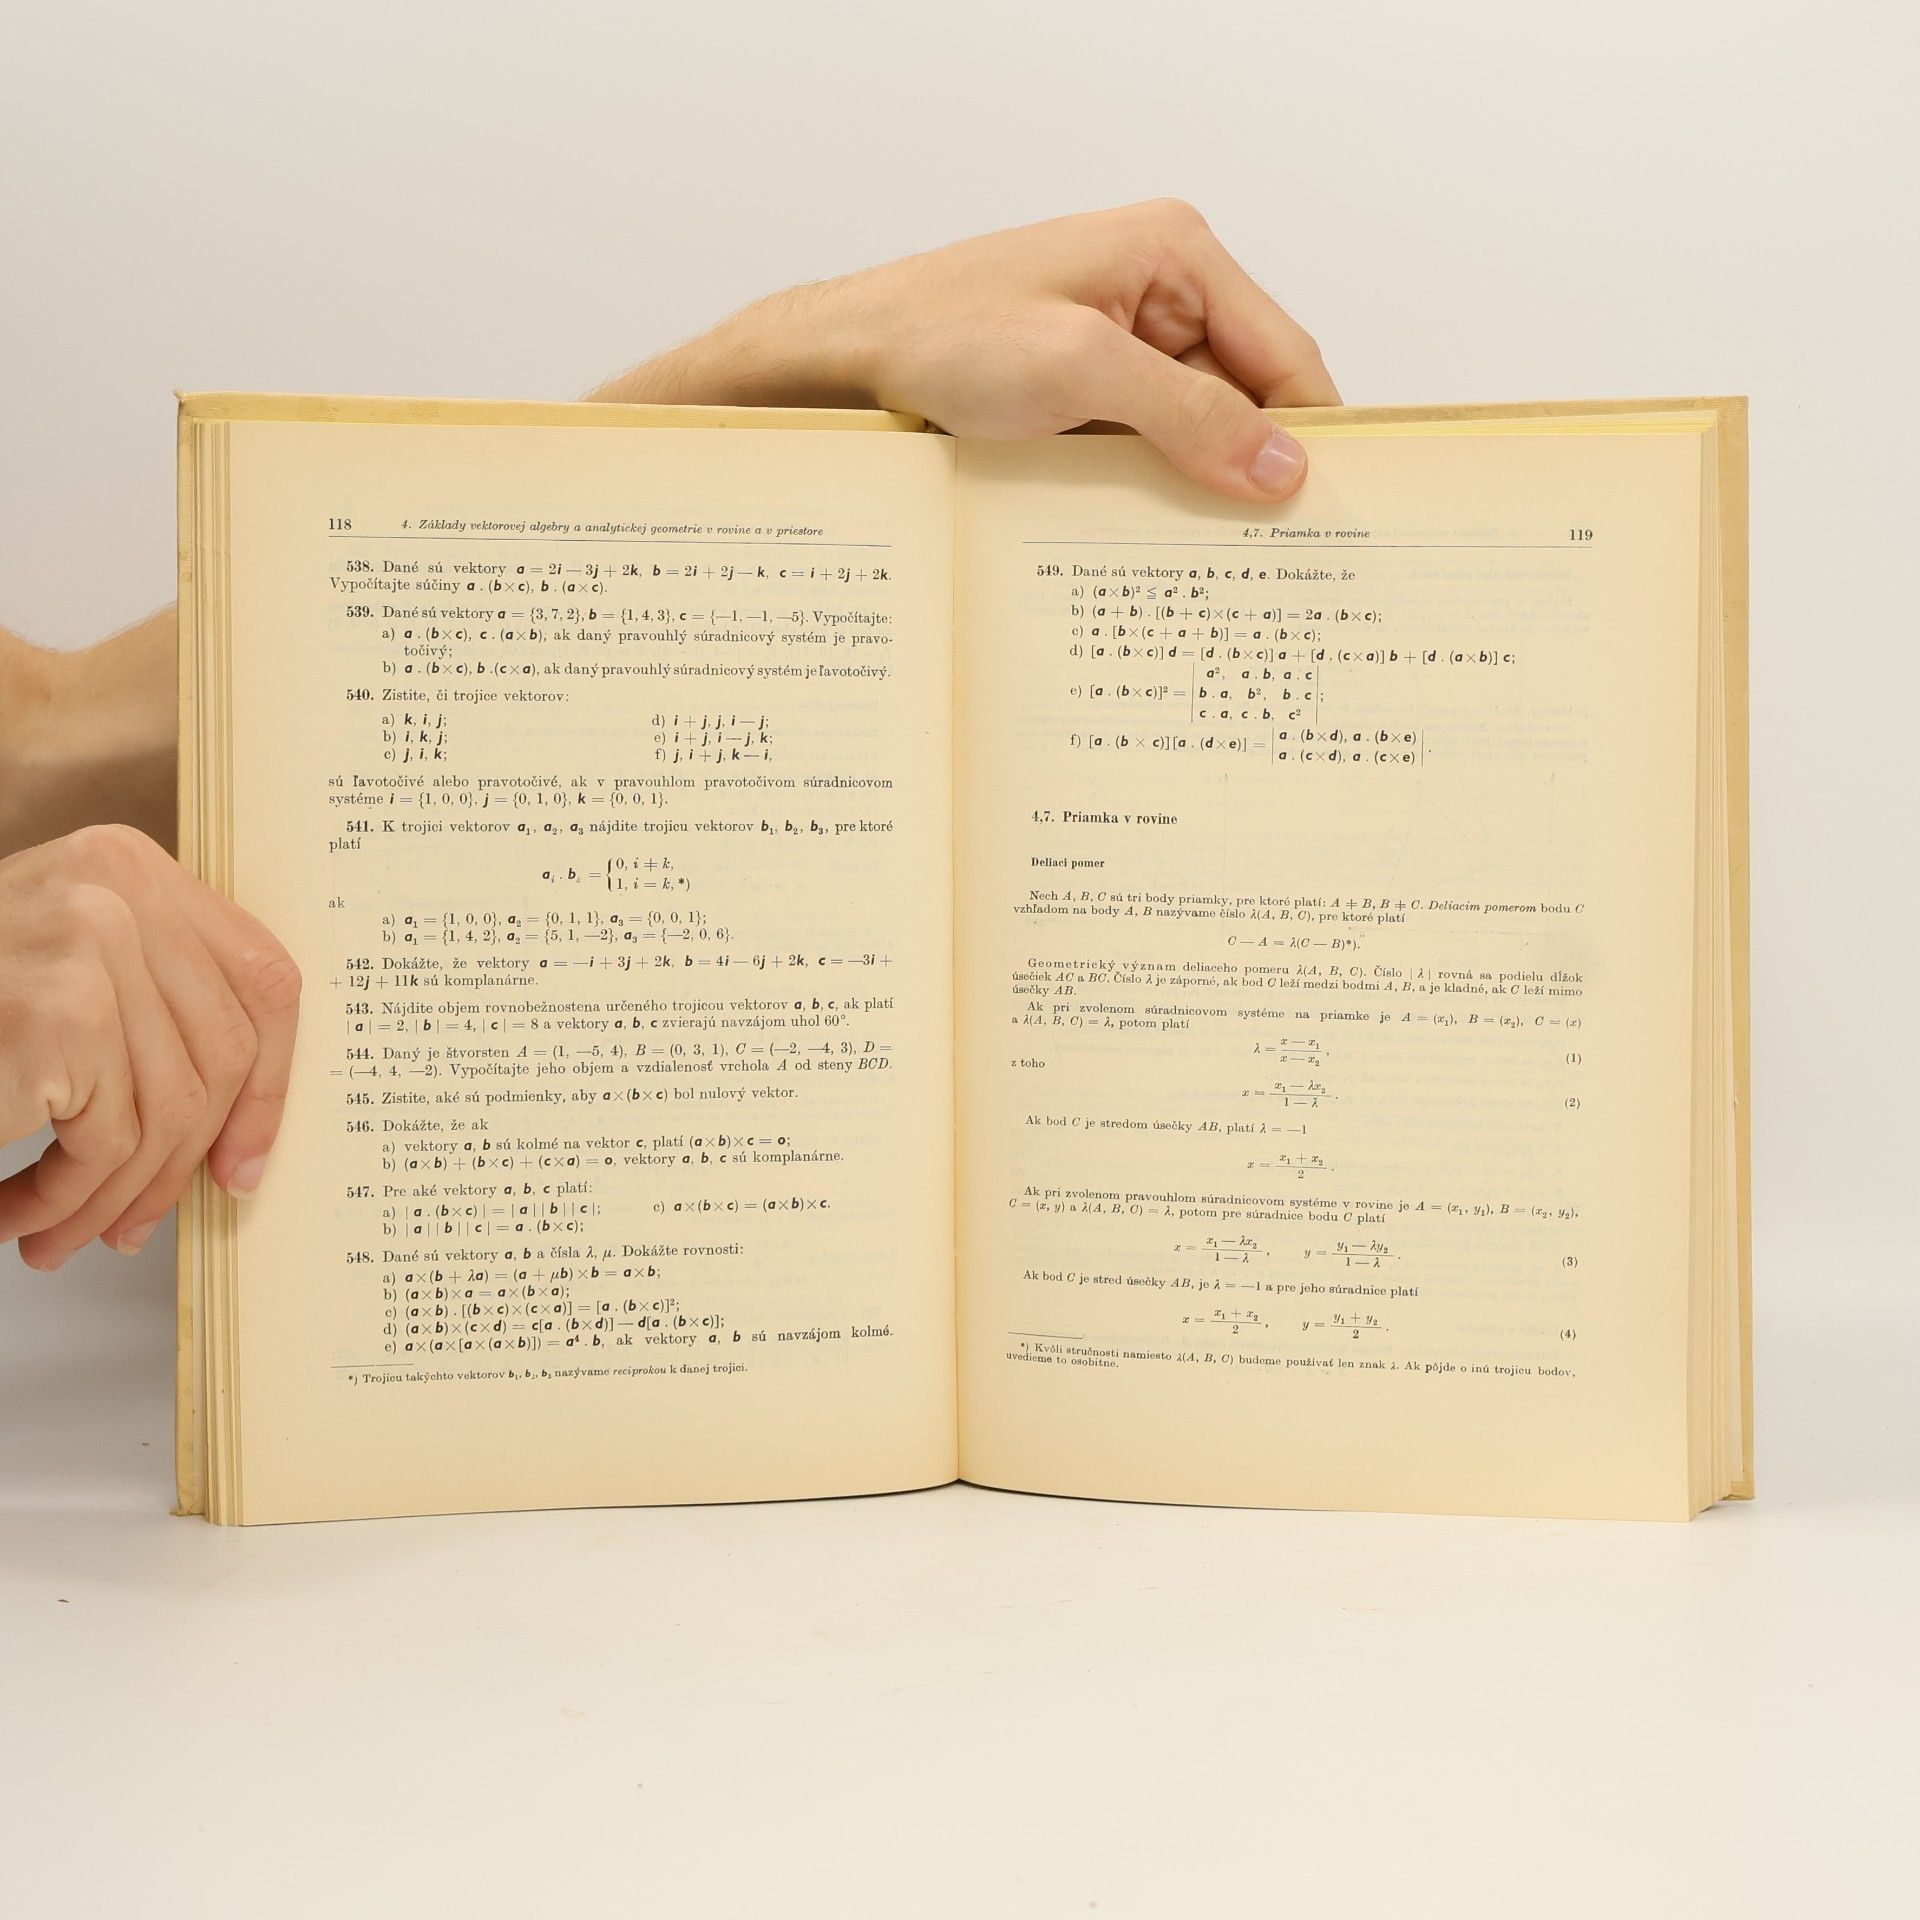 118 4. Základy vektorovej algebry a analytickej geometrie v rovine a v priestore
538. Dané sú vektory a = 2i — 3j + 2k, b = 2i + 2j — k, c = i + 2j + 2k.
Vypočítajte súčiny a . (b×c), b . (a×c).
539. Dané sú vektory a = {3, 7, 2}, b = {1, 4, 3}, c = {—1, —1, —5}. Vypočítajte:
a) a . (b×c), c . (a×b), ak daný pravouhlý súradnicový systém je pravo-
točivý;
b) a . (b×c), b .(c×a), ak daný pravouhlý súradnicový systém je ľavotočivý.
540. Zistite, či trojice vektorov:
a) k, i, j; d) i + j, j, i — j;
b) i, k, j; e) i + j, i — j, k;
c) j, i, k; f) j, i + j, k — i,
sú ľavotočivé alebo pravotočivé, ak v pravouhlom pravotočivom súradnicovom
systéme i = {1, 0, 0}, j = {0, 1, 0}, k = {0, 0, 1}.
541. K trojici vektorov a₁, a₂, a₃ nájdite trojicu vektorov b₁, b₂, b₃, pre ktoré
platí
aᵢ . bₖ = { 0, i ≠ k,
1, i = k, *)
ak
a) a₁ = {1, 0, 0}, a₂ = {0, 1, 1}, a₃ = {0, 0, 1};
b) a₁ = {1, 4, 2}, a₂ = {5, 1, —2}, a₃ = {—2, 0, 6}.
542. Dokážte, že vektory a = —i + 3j + 2k, b = 4i — 6j + 2k, c = —3i +
+ 12j + 11k sú komplanárne.
543. Nájdite objem rovnobežnostena určeného trojicou vektorov a, b, c, ak platí
| a | = 2, | b | = 4, | c | = 8 a vektory a, b, c zvierajú navzájom uhol 60°.
544. Daný je štvorsten A = (1, —5, 4), B = (0, 3, 1), C = (—2, —4, 3), D =
= (—4, 4, —2). Vypočítajte jeho objem a vzdialenosť vrchola A od steny BCD.
545. Zistite, aké sú podmienky, aby a×(b×c) bol nulový vektor.
546. Dokážte, že ak
a) vektory a, b sú kolmé na vektor c, platí (a×b)×c = o;
b) (a×b) + (b×c) + (c×a) = o, vektory a, b, c sú komplanárne.
547. Pre aké vektory a, b, c platí:
a) | a . (b×c) | = | a | | b | | c |; c) a×(b×c) = (a×b)×c.
b) | a | | b | | c | = a . (b×c);
548. Dané sú vektory a, b a čísla λ, μ. Dokážte rovnosti:
a) a×(b + λa) = (a + μb)×b = a×b;
b) (a×b)×a = a×(b×a);
c) (a×b) . [(b×c)×(c×a)] = [a . (b×c)]²;
d) (a×b)×(c×d) = c[a . (b×d)] — d[a . (b×c)];
e) a×(a×[a×(a×b)]) = a⁴ . b, ak vektory a, b sú navzájom kolmé.
*) Trojicu takýchto vektorov b₁, b₂, b₃ nazývame reciprokou k danej trojici.
4,7. Priamka v rovine 119
549. Dané sú vektory a, b, c, d, e. Dokážte, že
a) (a×b)² ≦ a² . b²;
b) (a + b) . [(b + c)×(c + a)] = 2a . (b×c);
c) a . [b×(c + a + b)] = a . (b×c);
d) [a . (b×c)] d = [d . (b×c)] a + [d . (c×a)] b + [d . (a×b)] c;
a², a . b, a . c
e) [a . (b×c)]² = | b . a, b², b . c |;
c . a, c . b, c²
f) [a . (b × c)][a . (d×e)] = | a . (b×d), a . (b×e) | .
a . (c×d), a . (c×e)
4,7. Priamka v rovine
Deliaci pomer
Nech A, B, C sú tri body priamky, pre ktoré platí: A ≠ B, B ≠ C. Deliacim pomerom bodu C
vzhľadom na body A, B nazývame číslo λ(A, B, C), pre ktoré platí
C — A = λ(C — B)*).
Geometrický význam deliaceho pomeru λ(A, B, C). Číslo | λ | rovná sa podielu dĺžok
úsečiek AC a BC. Číslo λ je záporné, ak bod C leží medzi bodmi A, B, a je kladné, ak C leží mimo
úsečky AB.
Ak pri zvolenom súradnicovom systéme na priamke je A = (x₁), B = (x₂), C = (x)
a λ(A, B, C) = λ, potom platí
λ = (x — x₁)/(x — x₂) , (1)
z toho
x = (x₁ — λx₂)/(1 — λ) . (2)
Ak bod C je stredom úsečky AB, platí λ = —1
x = (x₁ + x₂)/2 .
Ak pri zvolenom pravouhlom súradnicovom systéme v rovine je A = (x₁, y₁), B = (x₂, y₂),
C = (x, y) a λ(A, B, C) = λ, potom pre súradnice bodu C platí
x = (x₁ — λx₂)/(1 — λ) , y = (y₁ — λy₂)/(1 — λ) . (3)
Ak bod C je stred úsečky AB, je λ = —1 a pre jeho súradnice platí
x = (x₁ + x₂)/2 , y = (y₁ + y₂)/2 . (4)
*) Kvôli stručnosti namiesto λ(A, B, C) budeme používať len znak λ. Ak pôjde o inú trojicu bodov,
uvedieme to osobitne.